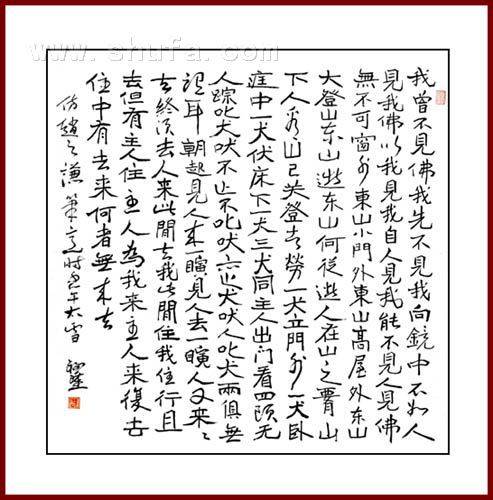 www.shufa.com
我曾不見佛我先不見我向鏡中不如人
見我佛以我見我自人見我能不見人見佛
無不可窗外東山小門外東山高屋外东山
大登山东山遊东山何從遊人在山之胥山
下人看山已失登去勞一犬立門外一犬卧
庭中一犬伏床下一犬三犬同主人出门看四顧无
人踪叱犬吠不止不叱吠亦止犬吠人叱犬兩俱無
耳朝起見人来一見人去一人又来〻
去終須去人来此間去我此間住我住行且
去但有主人住主人為我来主人来復去
住中有去来何者無来去
仿趙之謙筆意時午大雪